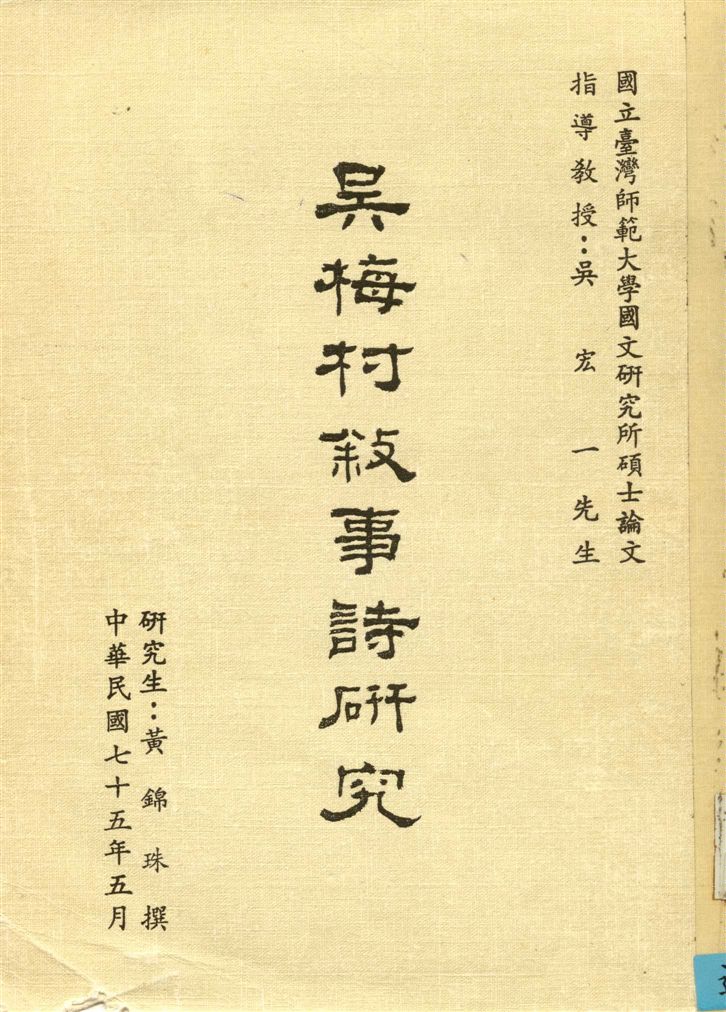 國立臺灣師範大學國文研究所碩士論文
指導教授：吳宏一先生
吳梅村敍事詩研究
研究生：黃錦珠撰
中華民國七十五年五月